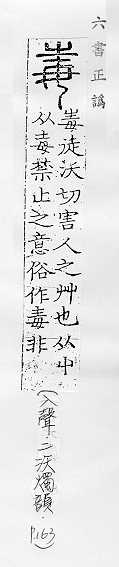 六書正譌
毒徒沃切害人之艸也从屮
从毒禁止之意俗作毒非
(入聲·二沃燭韻·P.163)